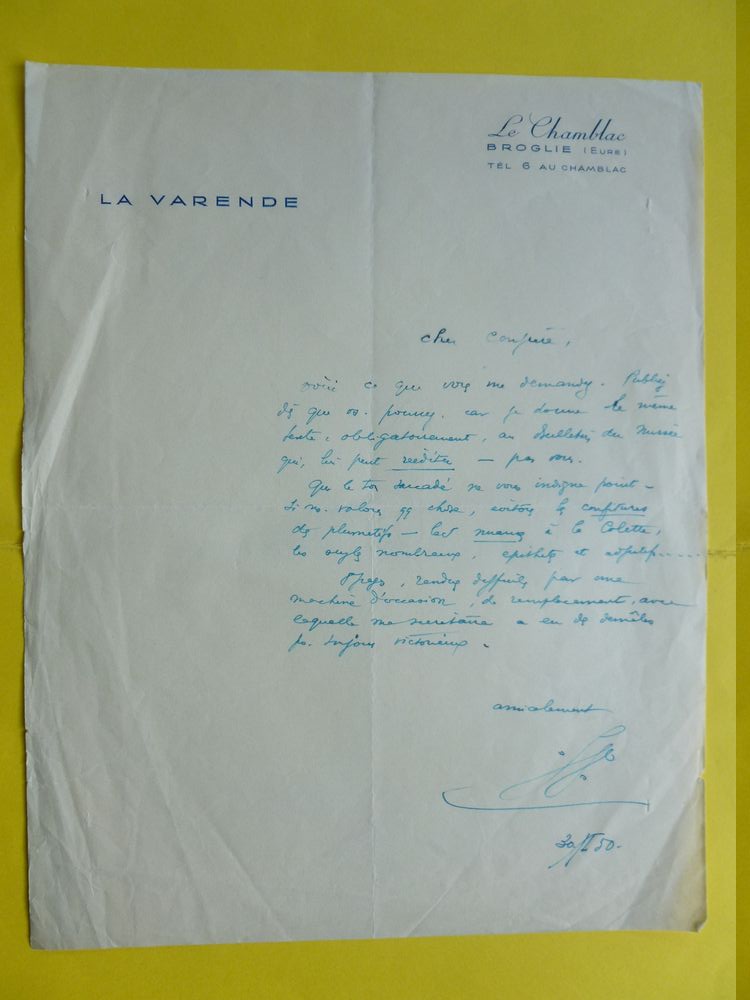 Le Chamblac
BROGLIE (EURE)
TÉL 6 AU CHAMBLAC
LA VARENDE
cher confrère,
voici ce que vous me demandez. Publiez
dès que vs. pourrez, car je donne le même
texte, obligatoirement, au Bulletin du Musée
qui, lui peut rééditer — pas vous.
Que le ton saccadé ne vous indigne point —
si ns. valons qq chose, évitons les confitures
des plumetifs — les nuances à la Colette,
les nombreux, epithetes et adjectifs.....
8 pages, rendues difficiles par une
machine d'occasion, de remplacement, avec
laquelle ma secrétaire a eu des démêlés
pas toujours victorieux.
amicalement
50.